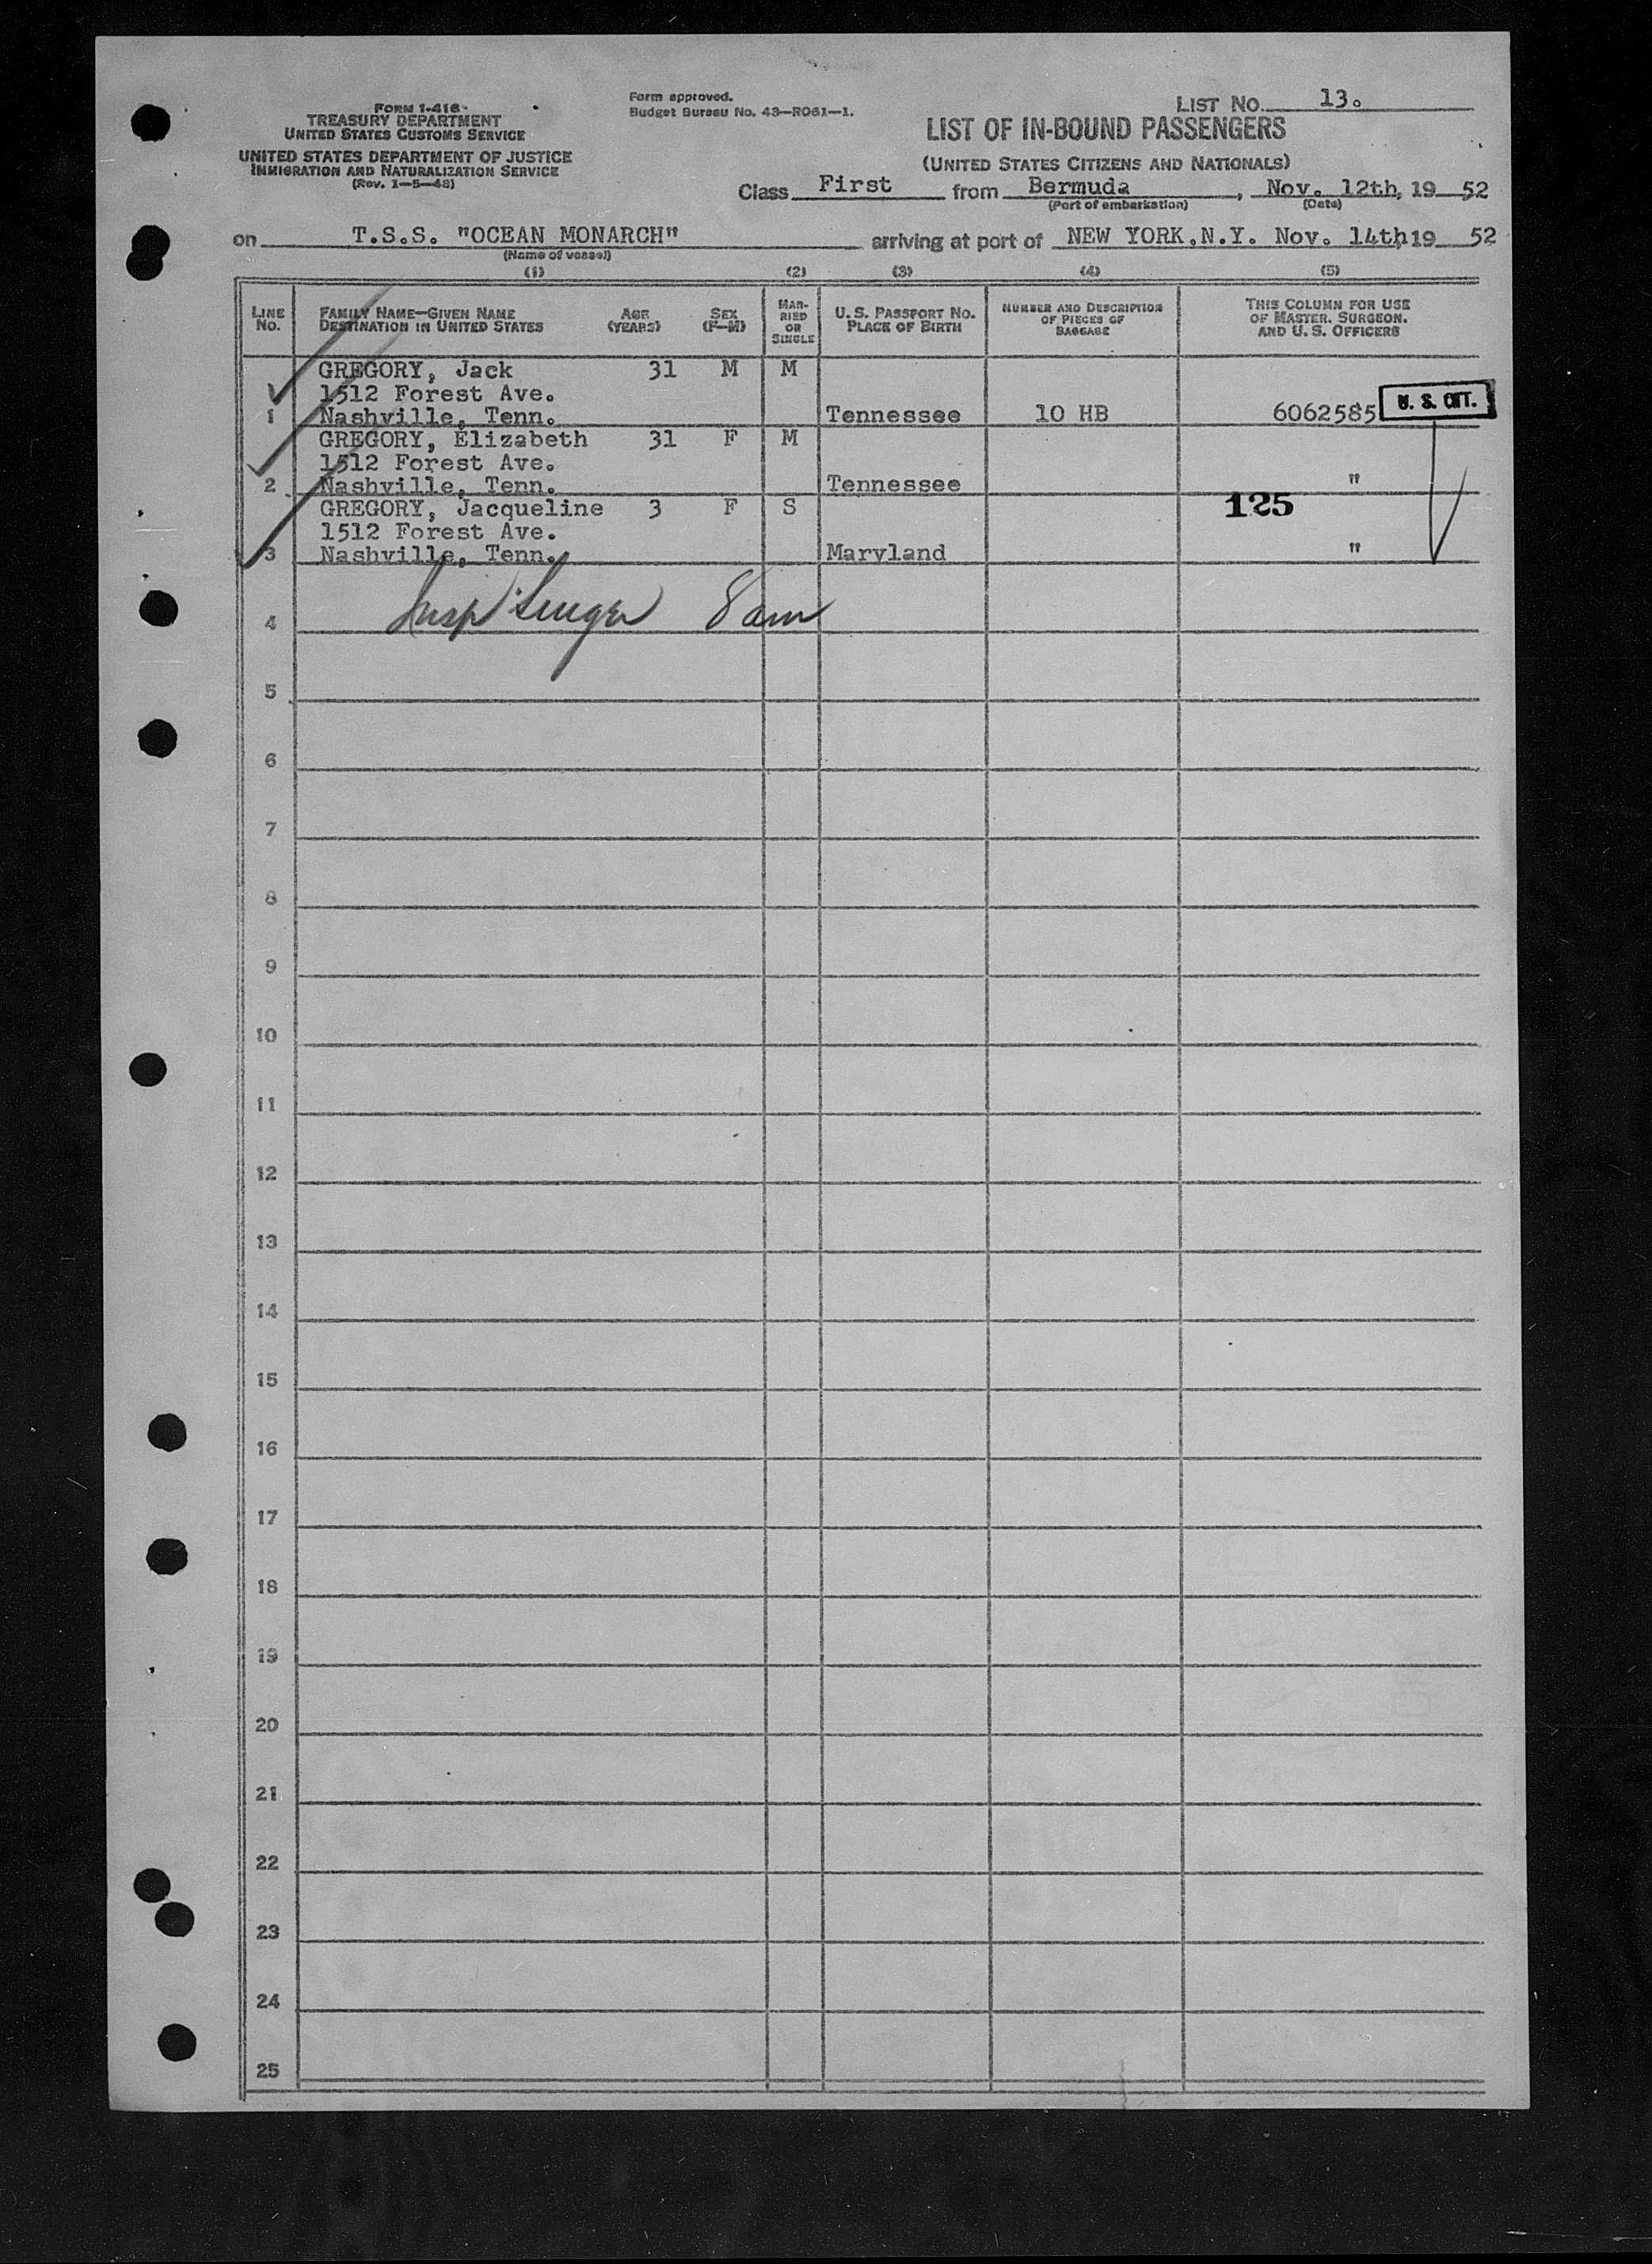 FORM I-416
TREASURY DEPARTMENT
UNITED STATES CUSTOMS SERVICE
UNITED STATES DEPARTMENT OF JUSTICE
IMMIGRATION AND NATURALIZATION SERVICE
(Rev. 1-5-48)
Form approved.
Budget Bureau No. 43-R061-1.
LIST NO. 13.
LIST OF IN-BOUND PASSENGERS
(UNITED STATES CITIZENS AND NATIONALS)
Class First from Bermuda, Nov. 12th, 19 52
(Port of embarkation) (Date)
on T.S.S. "OCEAN MONARCH" arriving at port of NEW YORK,N.Y. Nov. 14th 19 52
(Name of vessel)
(1) (2) (3) (4) (5)
LINE NO. FAMILY NAME—GIVEN NAME DESTINATION IN UNITED STATES AGE (YEARS) SEX (F-M) MARRIED OR SINGLE U. S. PASSPORT NO. PLACE OF BIRTH NUMBER AND DESCRIPTION OF PIECES OF BAGGAGE THIS COLUMN FOR USE OF MASTER, SURGEON, AND U. S. OFFICERS
GREGORY, Jack 31 M M
1512 Forest Ave.
1 Nashville, Tenn. Tennessee 10 HB 6062585 U. S. CIT.
GREGORY, Elizabeth 31 F M
1512 Forest Ave.
2 Nashville, Tenn. Tennessee "
GREGORY, Jacqueline 3 F S 125
1512 Forest Ave.
3 Nashville, Tenn. Maryland "
4 Insp 8 am
5
6
7
8
9
10
11
12
13
14
15
16
17
18
19
20
21
22
23
24
25